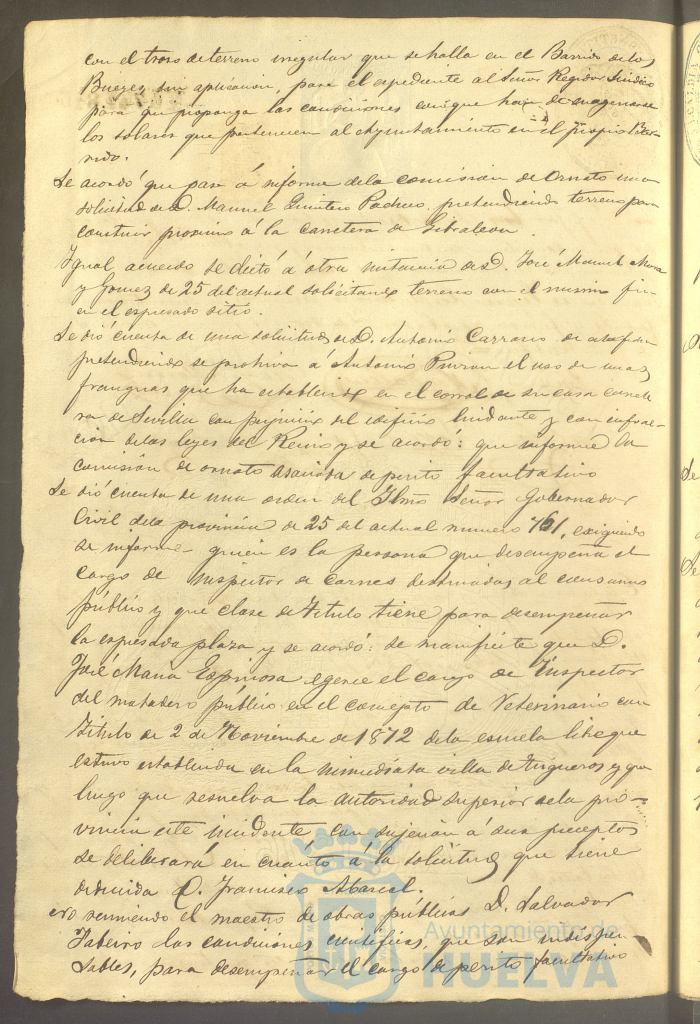 con el trozo de terreno irregular que se halla en el Barrio de los
Bueyes sin aplicacion, pase el espediente al Señor Regidor Sindico
para que proponga las condiciones con que haya de enagenarse
los solares que pertenecen al Ayuntamiento en el propio Bar-
rio.
Se acordó que pase á informe de la comision de Ornato una
solicitud de D. Manuel Quintero Pacheco, pretendiendo terreno para
construir proximo á la carretera de Gibraleon.
Igual acuerdo se dictó á otra instancia de D. José Manuel Mora
y Gomez de 25 del actual solicitando terreno con el mismo fin
en el espresado sitio.
Se dió cuenta de una solicitud de D. Antonio Carrasco de
pretendiendo se prohiva á Antonio el uso de unas
fraguas que ha establecido en el corral de su casa carrete-
ra de Sevilla con perjuicio del edificio lindante y con infrac-
cion de las leyes del Reino y se acordó: que informe la
comision de ornato asociada de perito facultativo
Se dió cuenta de una orden del Ilmo Señor Gobernador
Civil de la provincia de 25 del actual numero 761, exigiendo
se informe quien es la persona que desempeña el
cargo de inspector de carnes destinadas al consumo
público y que clase de titulo tiene para desempeñar
la espresada plaza y se acordó: se manifieste que D.
José Maria Espinosa egerce el cargo de Inspector
del matadero público en el concepto de Veterinario con
titulo de 2 de Noviembre de 1872 de la escuela libre que
estuvo establecida en la inmediata villa de Trigueros y que
luego que resuelva la autoridad superior de la pro-
vincia este incidente con sujecion á sus preceptos
se deliberará en cuanto á la solicitud que tiene
deducida D. Francisco Abascal.
reuniendo el maestro de obras públicas D. Salvador
las condiciones cientificas, que son indispen-
sables, para desempeñar el cargo de perito facultativo
Ayuntamiento de
HUELVA